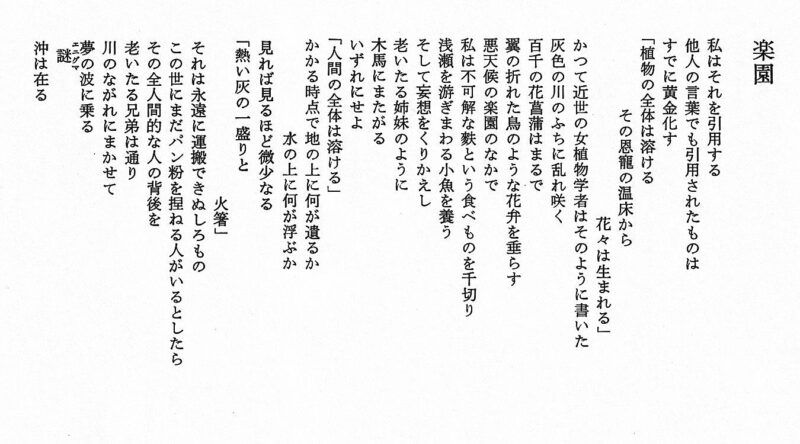 楽園
私はそれを引用する
他人の言葉でも引用されたものは
すでに黄金化す
「植物の全体は溶ける
その恩寵の温床から
花々は生まれる」
かつて近世の女植物学者はそのように書いた
灰色の川のふちに乱れ咲く
百千の花菖蒲はまるで
翼の折れた鳥のような花弁を垂らす
悪天候の楽園のなかで
私は不可解な麩という食べものを千切り
浅瀬を游ぎまわる小魚を養う
そして妄想をくりかえし
老いたる姉妹のように
木馬にまたがる
いずれにせよ
「人間の全体は溶ける」
かかる時点で地の上に何が遺るか
水の上に何が浮ぶか
見れば見るほど微少なる
「熱い灰の一盛りと
火箸」
それは永遠に運搬できぬしろもの
この世にまだパン粉を捏ねる人がいるとしたら
その全人間的な人の背後を
老いたる兄弟は通り
川のながれにまかせて
夢の波に乗る
謎
エニグマ
沖は在る